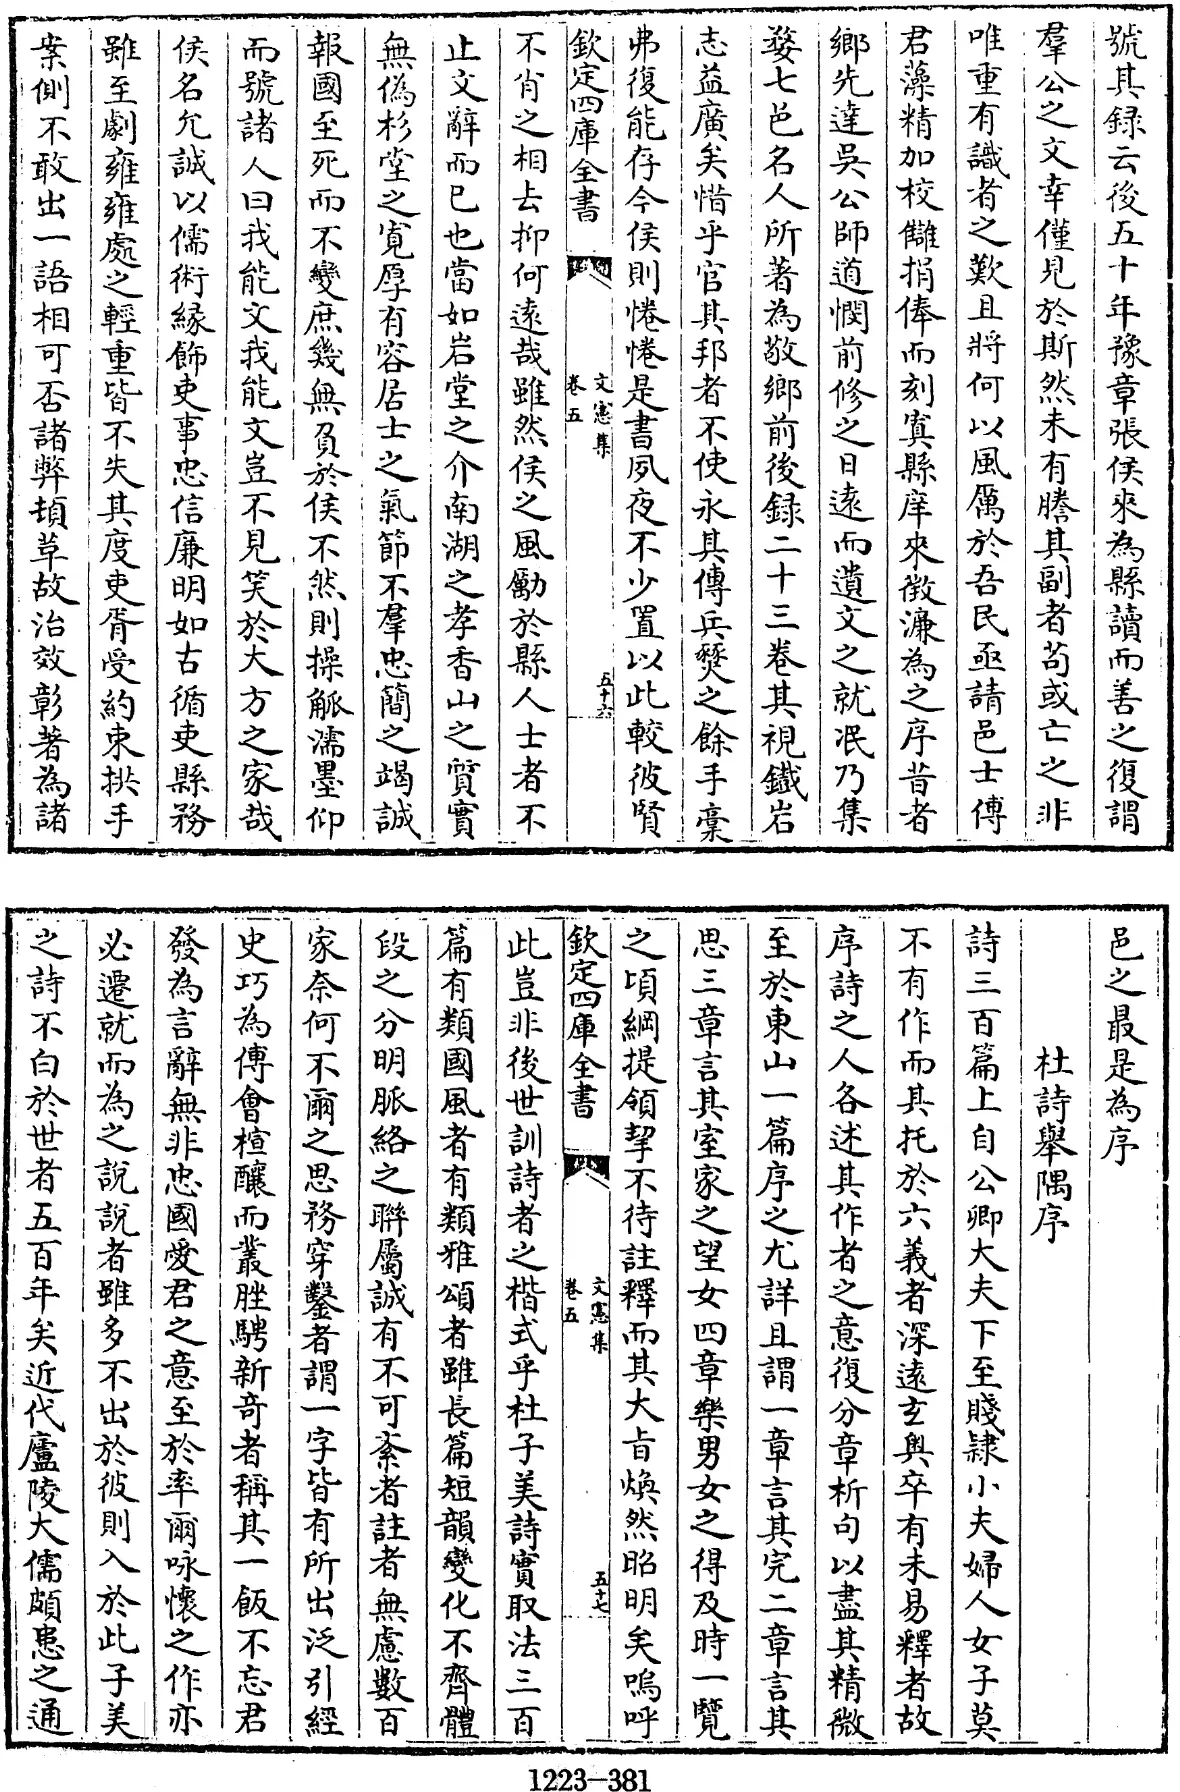 號其録云後五十年豫章張侯來為縣讀而善之復謂
羣公之文幸僅見於斯然未有謄其副者苟或亡之非
唯重有識者之歎且將何以風厲於吾民亟請邑士傅
君藻精加校讎捐俸而刻寘縣庠來徵濂為之序昔者
鄉先達吳公師道憫前修之日遠而遺文之就泯乃集
婺七邑名人所著為敬鄉前後録二十三卷其視鐡岩
志益廣矣惜乎官其邦者不使永其傳兵燹之餘手稾
弗復能存今侯則惓惓是書夙夜不少置以此較彼賢
欽定四庫全書
文憲集
卷五
五十六
不肖之相去抑何遠哉雖然侯之風勵於縣人士者不
止文辭而已也當如岩堂之介南湖之孝香山之質實
無偽杉堂之寛厚有容居士之氣節不羣忠簡之竭誠
報國至死而不變庶幾無負於侯不然則操觚濡墨仰
而號諸人曰我能文我能文豈不見笑於大方之家哉
侯名允誠以儒術緣飾吏事忠信廉明如古循吏縣務
雖至劇雍雍處之輕重皆不失其度吏胥受約束拱手
案側不敢出一語相可否諸弊頓草故治效彰著為諸
邑之最是為序
杜詩舉隅序
詩三百篇上自公卿大夫下至賤隸小夫婦人女子莫
不有作而其托於六義者深遠玄奥卒有未易釋者故
序詩之人各述其作者之意復分章析句以盡其精微
至於東山一篇序之尤詳且謂一章言其完二章言其
思三章言其室家之望女四章樂男女之得及時一覽
之頃綱提領挈不待註釋而其大旨煥然昭明矣嗚呼
欽定四庫全書
文憲集
卷五
五十七
此豈非後世訓詩者之楷式乎杜子美詩實取法三百
篇有類國風者有類雅頌者雖長篇短韻變化不齊體
段之分明脈絡之聯屬誠有不可紊者註者無慮數百
家奈何不爾之思務穿鑿者謂一字皆有所出泛引經
史巧為傅會楦釀而叢脞騁新奇者稱其一飯不忘君
發為言辭無非忠國愛君之意至於率爾咏懷之作亦
必遷就而為之說說者雖多不出於彼則入於此子美
之詩不白於世者五百年矣近代廬陵大儒頗患之通
1223-381